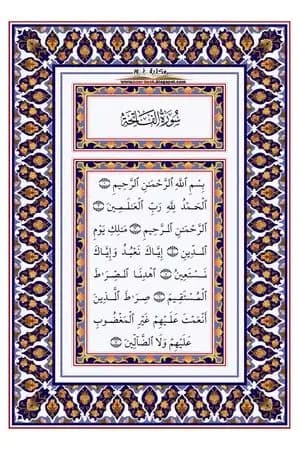 سُورَةُ الْفَاتِحَةِ
بِسْمِ ٱللَّهِ ٱلرَّحْمَٰنِ ٱلرَّحِيمِ ۝
ٱلْحَمْدُ لِلَّهِ رَبِّ ٱلْعَٰلَمِينَ ۝
ٱلرَّحْمَٰنِ ٱلرَّحِيمِ ۝ مَٰلِكِ يَوْمِ
ٱلدِّينِ ۝ إِيَّاكَ نَعْبُدُ وَإِيَّاكَ
نَسْتَعِينُ ۝ ٱهْدِنَا ٱلصِّرَٰطَ
ٱلْمُسْتَقِيمَ ۝ صِرَٰطَ ٱلَّذِينَ
أَنْعَمْتَ عَلَيْهِمْ غَيْرِ ٱلْمَغْضُوبِ
عَلَيْهِمْ وَلَا ٱلضَّآلِّينَ ۝